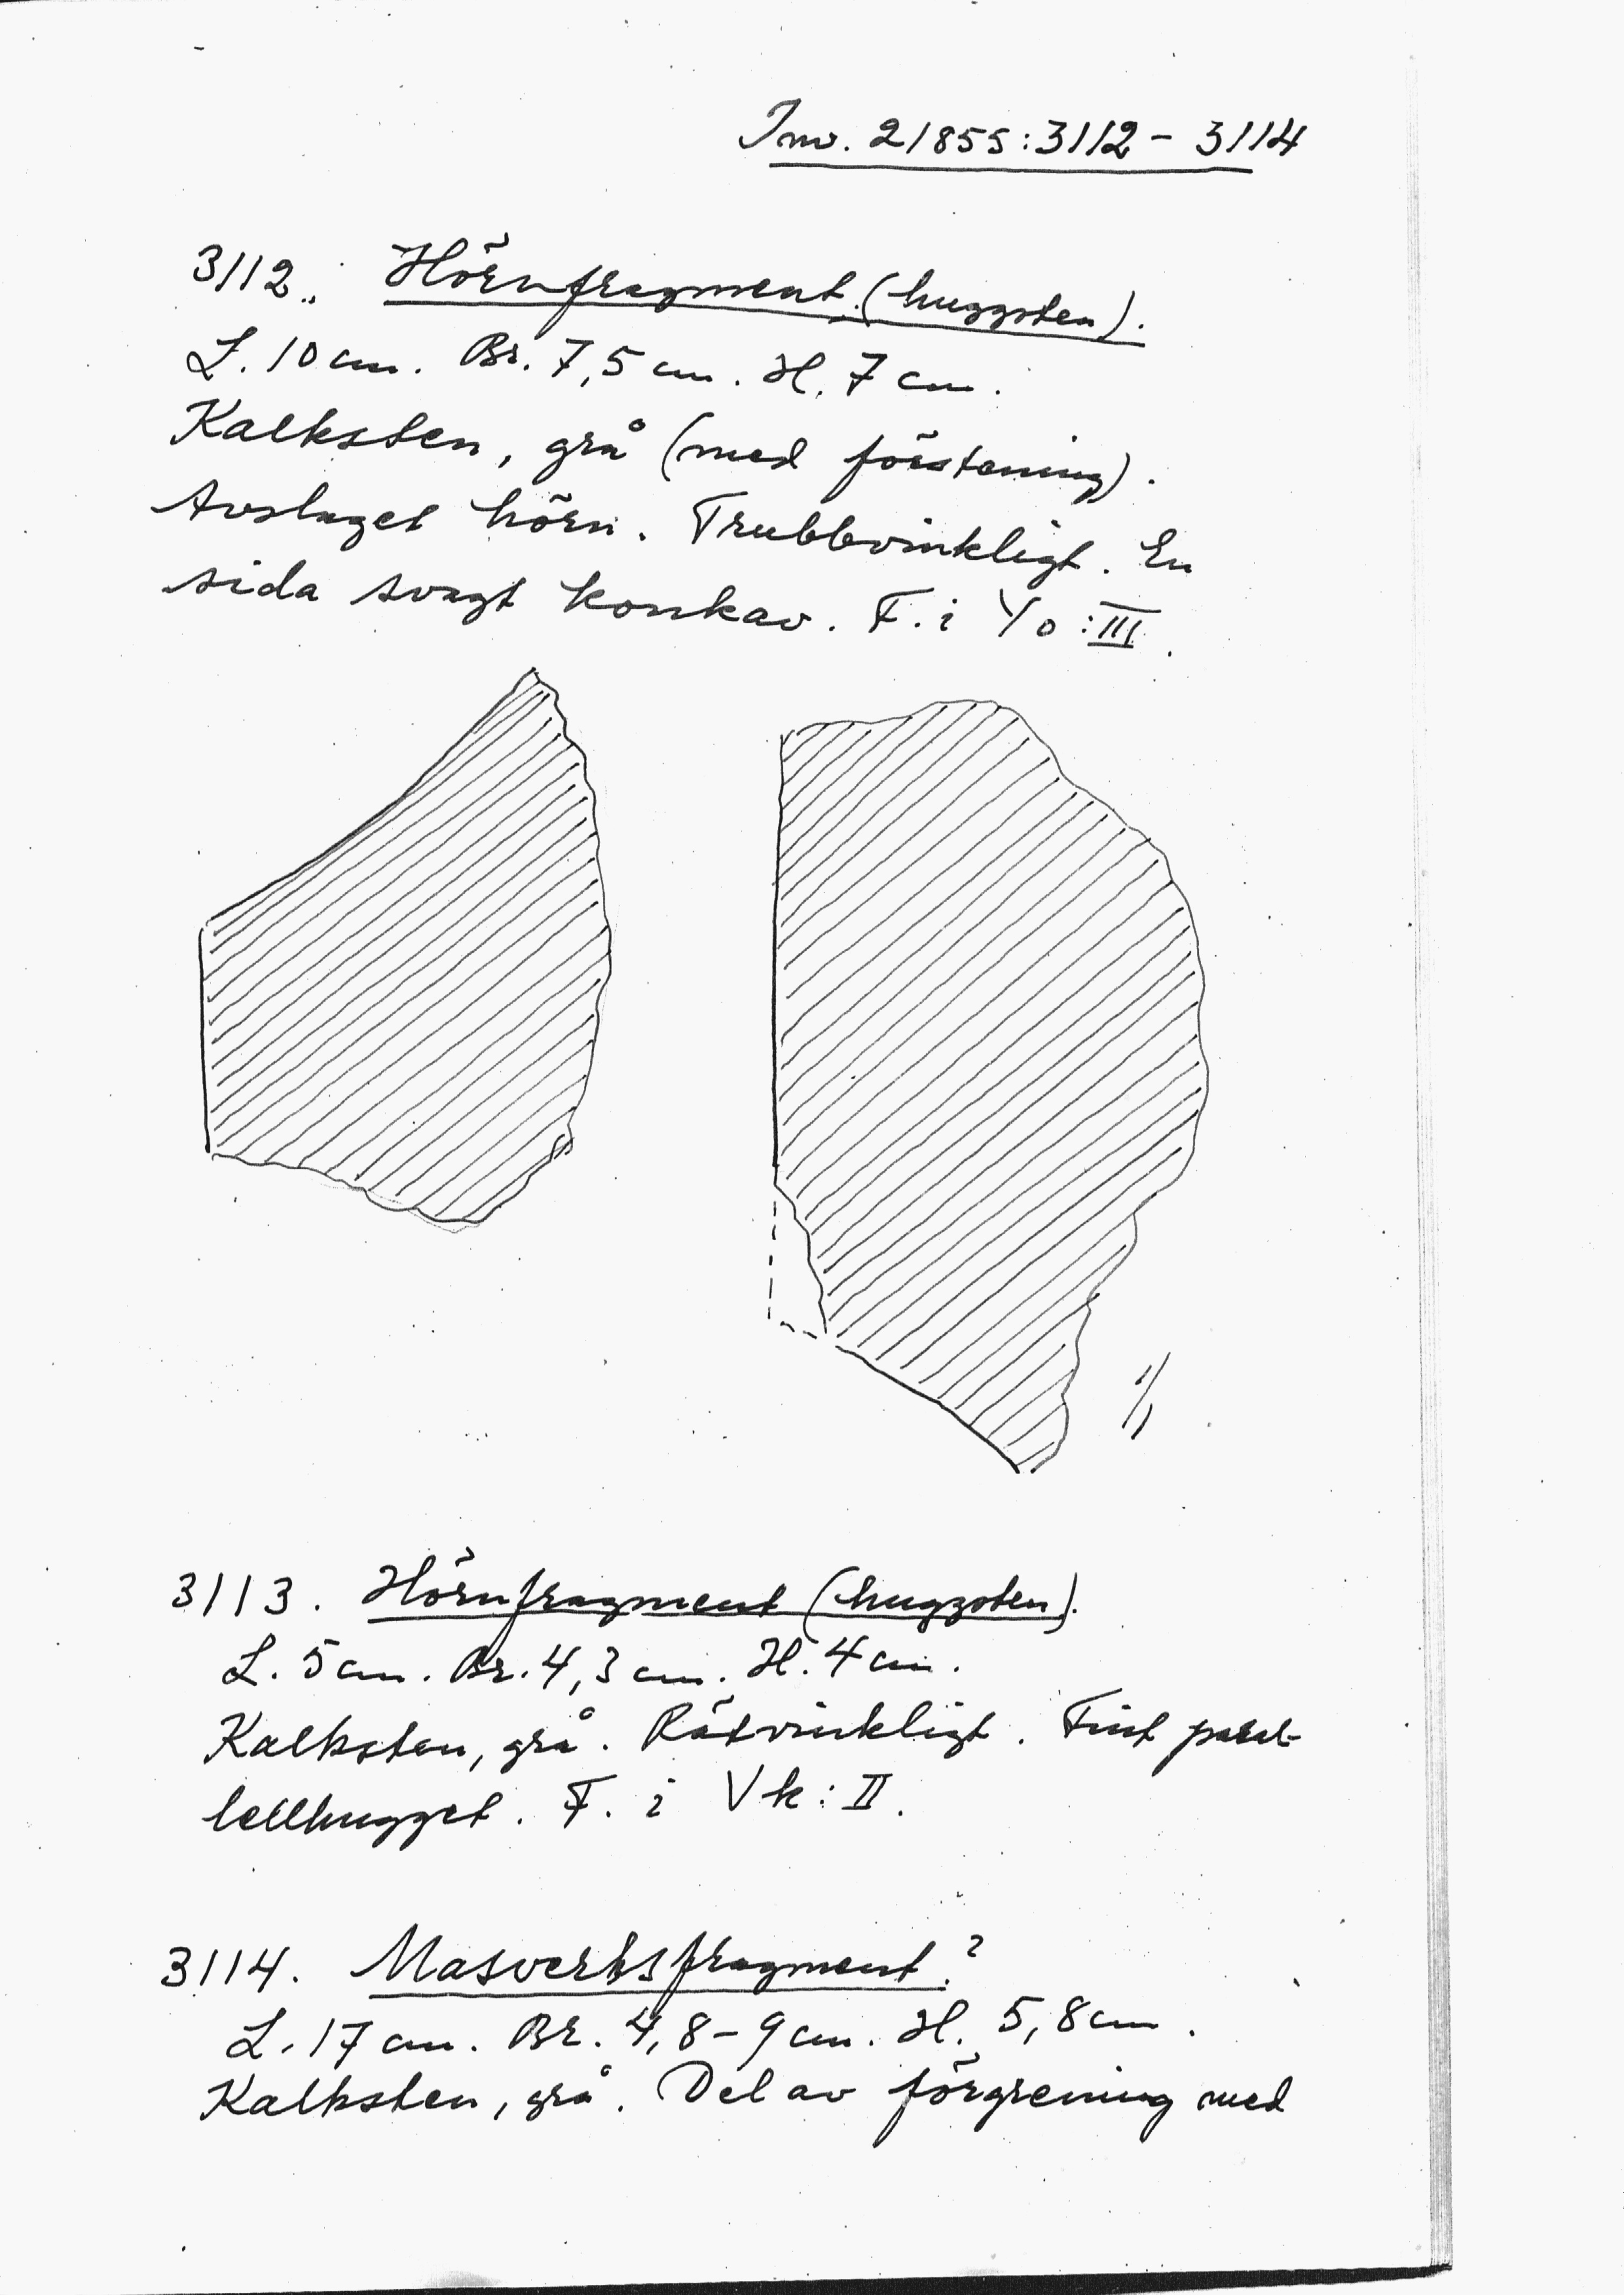 Inv. 21855:3112 - 3114
3112. Hörnfragment (huggsten).
L. 10 cm. Br. 7,5 cm. H. 7 cm.
Kalksten, grå (med förstening).
Avslaget hörn. Trubbvinkligt. En
sida svagt konkav. F. i Yo:III.
1/1
3113. Hörnfragment (huggsten).
L. 5 cm. Br. 4,3 cm. H. 4 cm.
Kalksten, grå. Rätvinkligt. Fint paral-
lellhugget. F. i Vk:II.
3114. Masverksfragment?
L. 17 cm. Br. 4,8-9 cm. H. 5,8 cm.
Kalksten, grå. Del av förgrening med